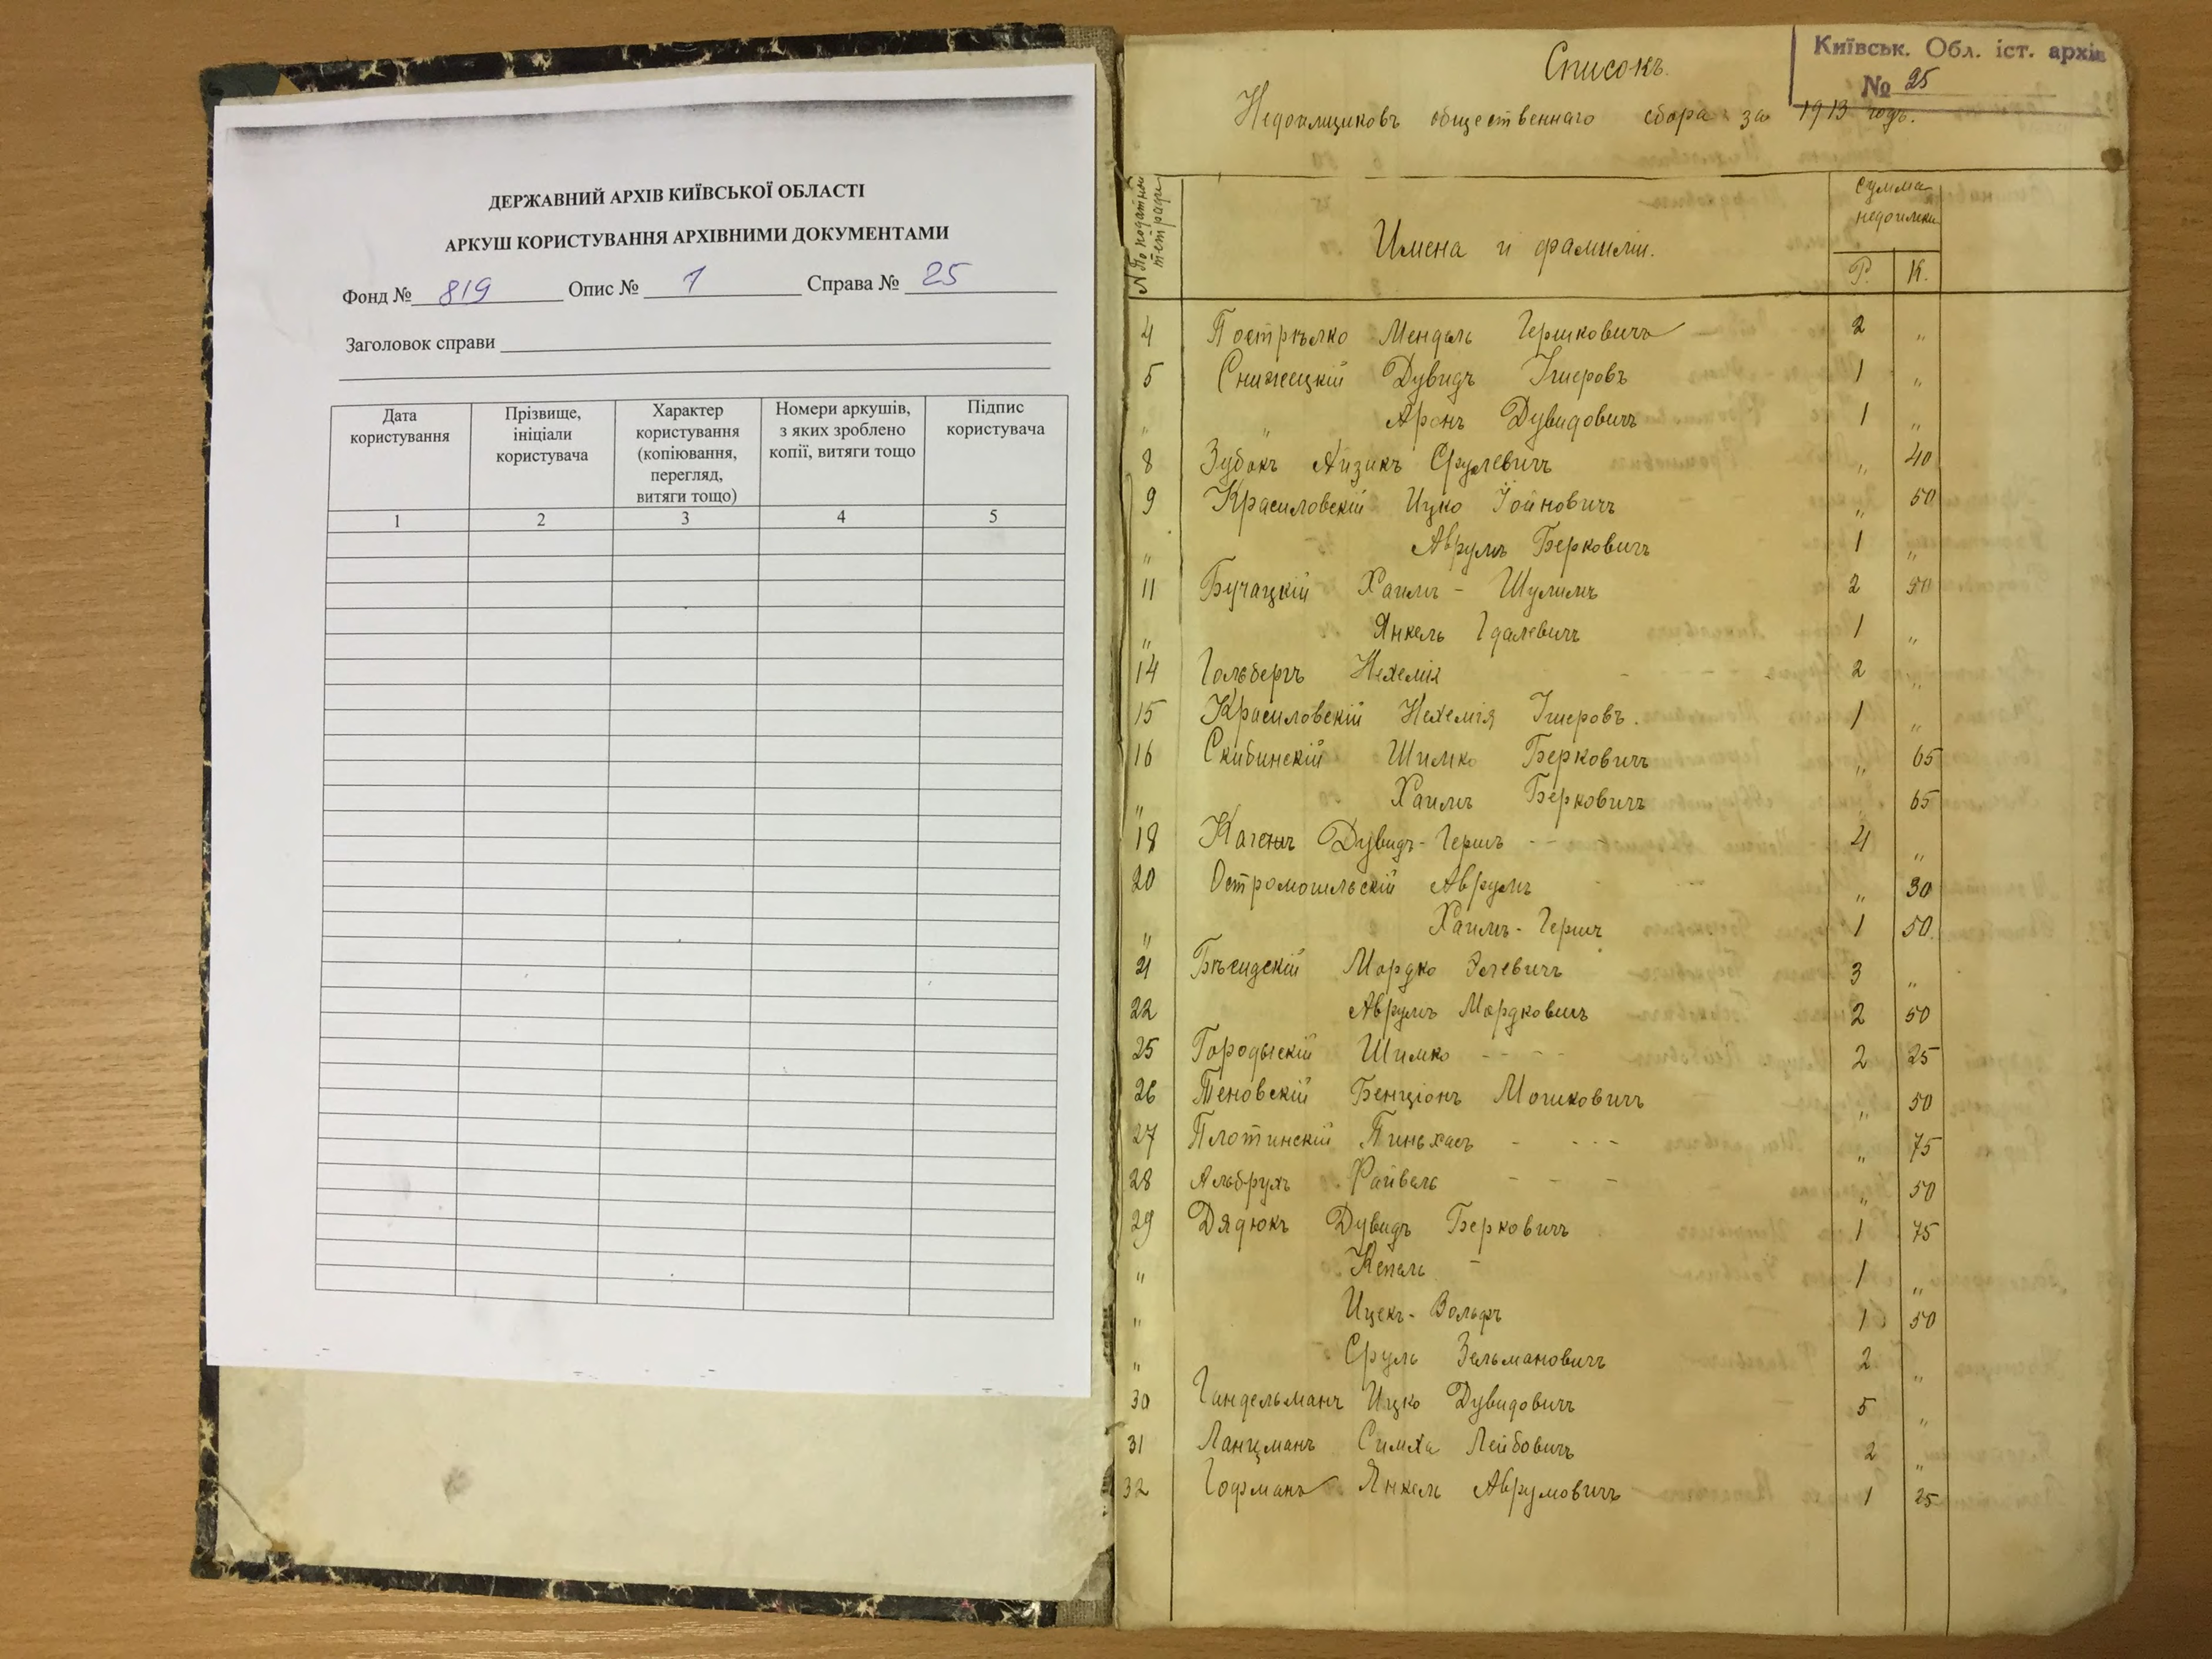 ДЕРЖАВНИЙ АРХІВ КИЇВСЬКОЇ ОБЛАСТІ
АРКУШ КОРИСТУВАННЯ АРХІВНИМИ ДОКУМЕНТАМИ
Фонд № 819 Опис № 1 Справа № 25
Заголовок справи
Дата користування
Прізвище, ініціали користувача
Характер користування (копіювання, перегляд, витяги тощо)
Номери аркушів, з яких зроблено копії, витяги тощо
Підпис користувача
1 2 3 4 5
Київськ. Обл. іст. архів
№ 25
Списокъ.
Недоимщиковъ общественнаго сбора за 1913 годъ.
№ По податной тетради
Имена и фамиліи.
Сумма недоимки
Р. К.
4 Пострѣлко Мендель Гершковичъ 2 "
5 Снижецкій Дувидъ Ишеровъ 1 "
" " Аронъ Дувидовичъ 1 "
8 Зубокъ Айзикъ Срулевичъ " 40
9 Красиловскій Ицко Іойновичъ " 50
" Аврумъ Берковичъ 1 "
11 Бучацкій Хаимъ - Шулимъ 2 50
" Янкель Гдалевичъ 1 "
14 Гольбергъ Нехемія 2 "
15 Красиловскій Нехемія Ишеровъ. 1 "
16 Скибинскій Шимко Берковичъ " 65
" Хаимъ Берковичъ 65
18 Каганъ Дувидъ-Гершъ - - 4 "
20 Остромогильскій Аврумъ " 30
" Хаимъ-Гершъ 1 50
21 Мордко 3 "
22 Аврумъ Мордковичъ 2 50
25 Городыскій Шимко - - - - 2 25
26 Теновскій Бенціонъ Мошковичъ " 50
27 Плотинскій Пиньхасъ - - - - " 75
28 Альбрухъ Файвель - - - " 50
29 Дядюкъ Дувидъ Берковичъ 1 75
" Кепель - 1 "
" Ицекъ-Вольфъ 1 50
" Сруль Зельмановичъ 2 "
30 Гиндельманъ Ицко Дувидовичъ 5 "
31 Ланцманъ Симха Лейбовичъ 2 "
32 Гофманъ Янкель Аврумовичъ 1 25